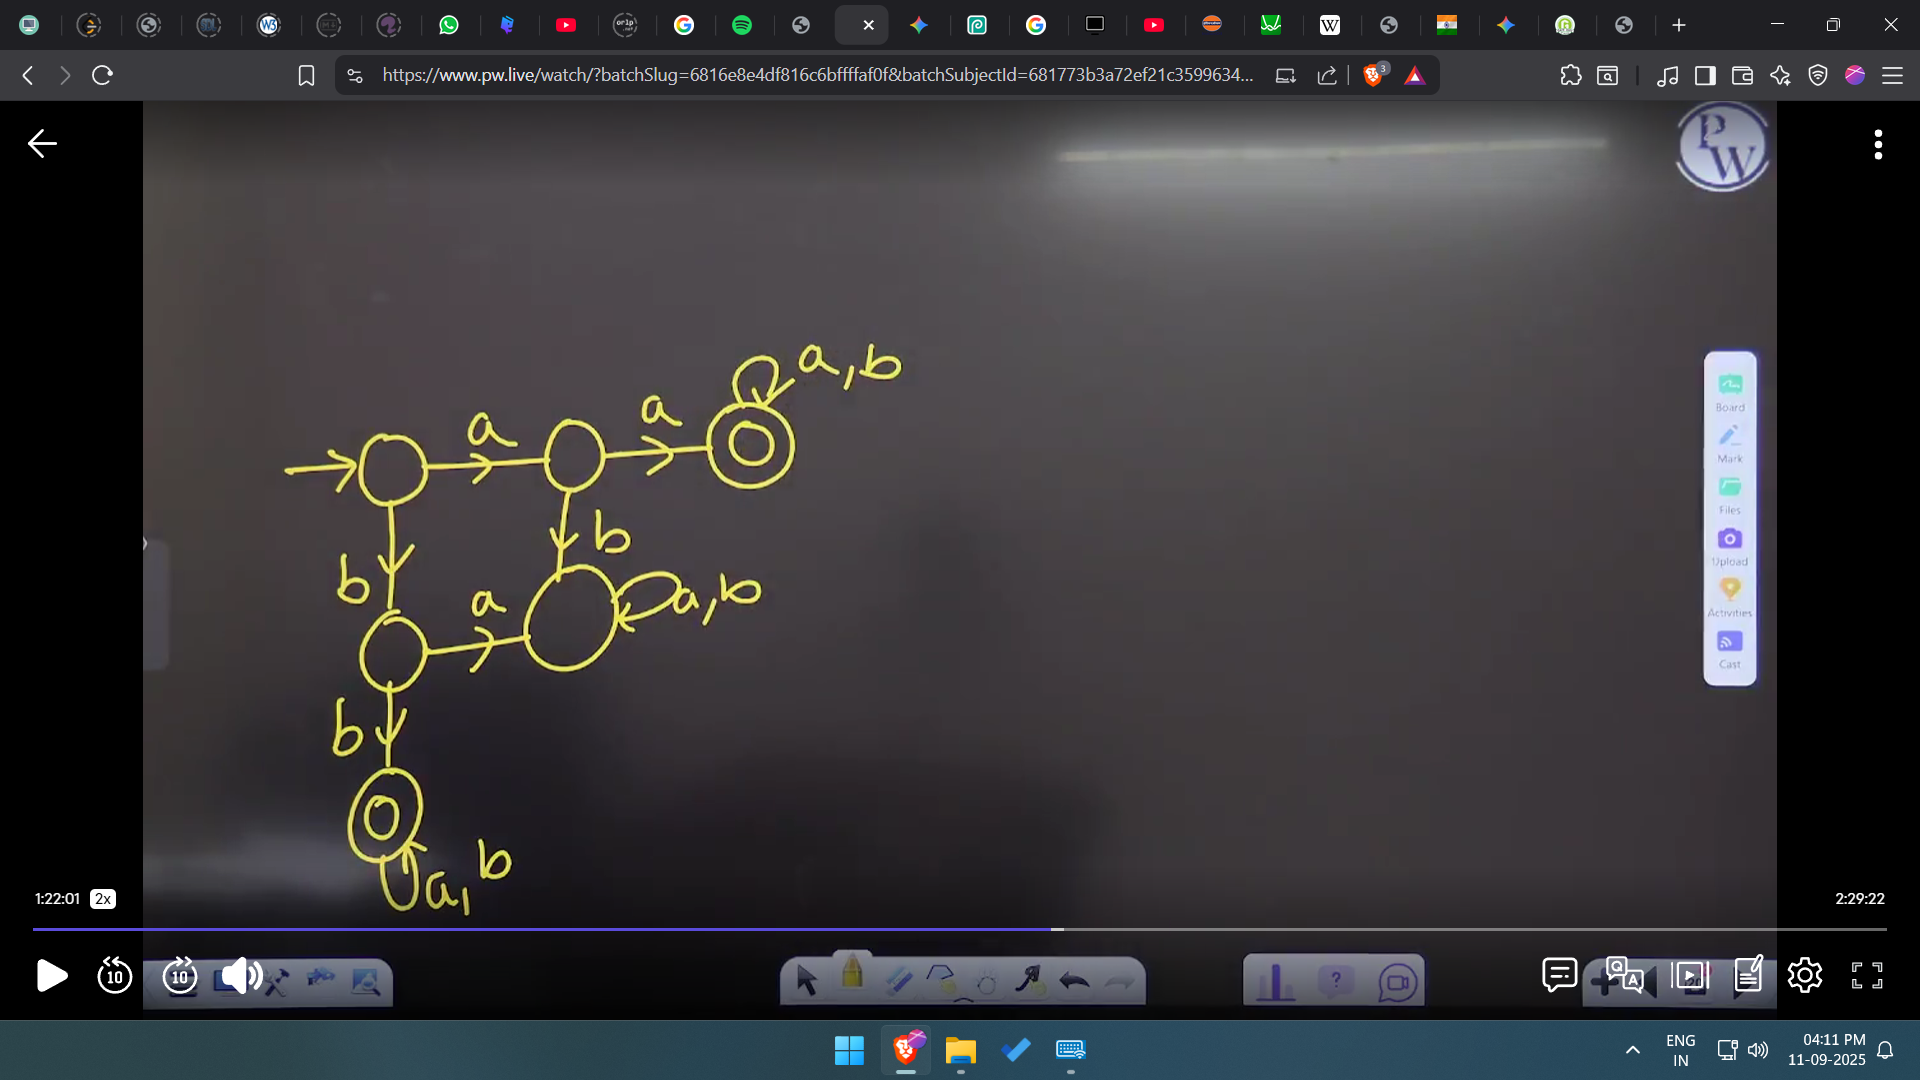 https://www.pw.live/watch/?batchSlug=6816e8e4df816c6bffffaf0f&batchSubjectId=681773b3a72ef21c3599634...
3
PW
a, b
a
a
b
b
a
a, b
b
a, b
Board
Mark
Files
Upload
Activities
Cast
1:22:01 2x
2:29:22
10
10
Q A
ENG
IN
04:11 PM
11-09-2025